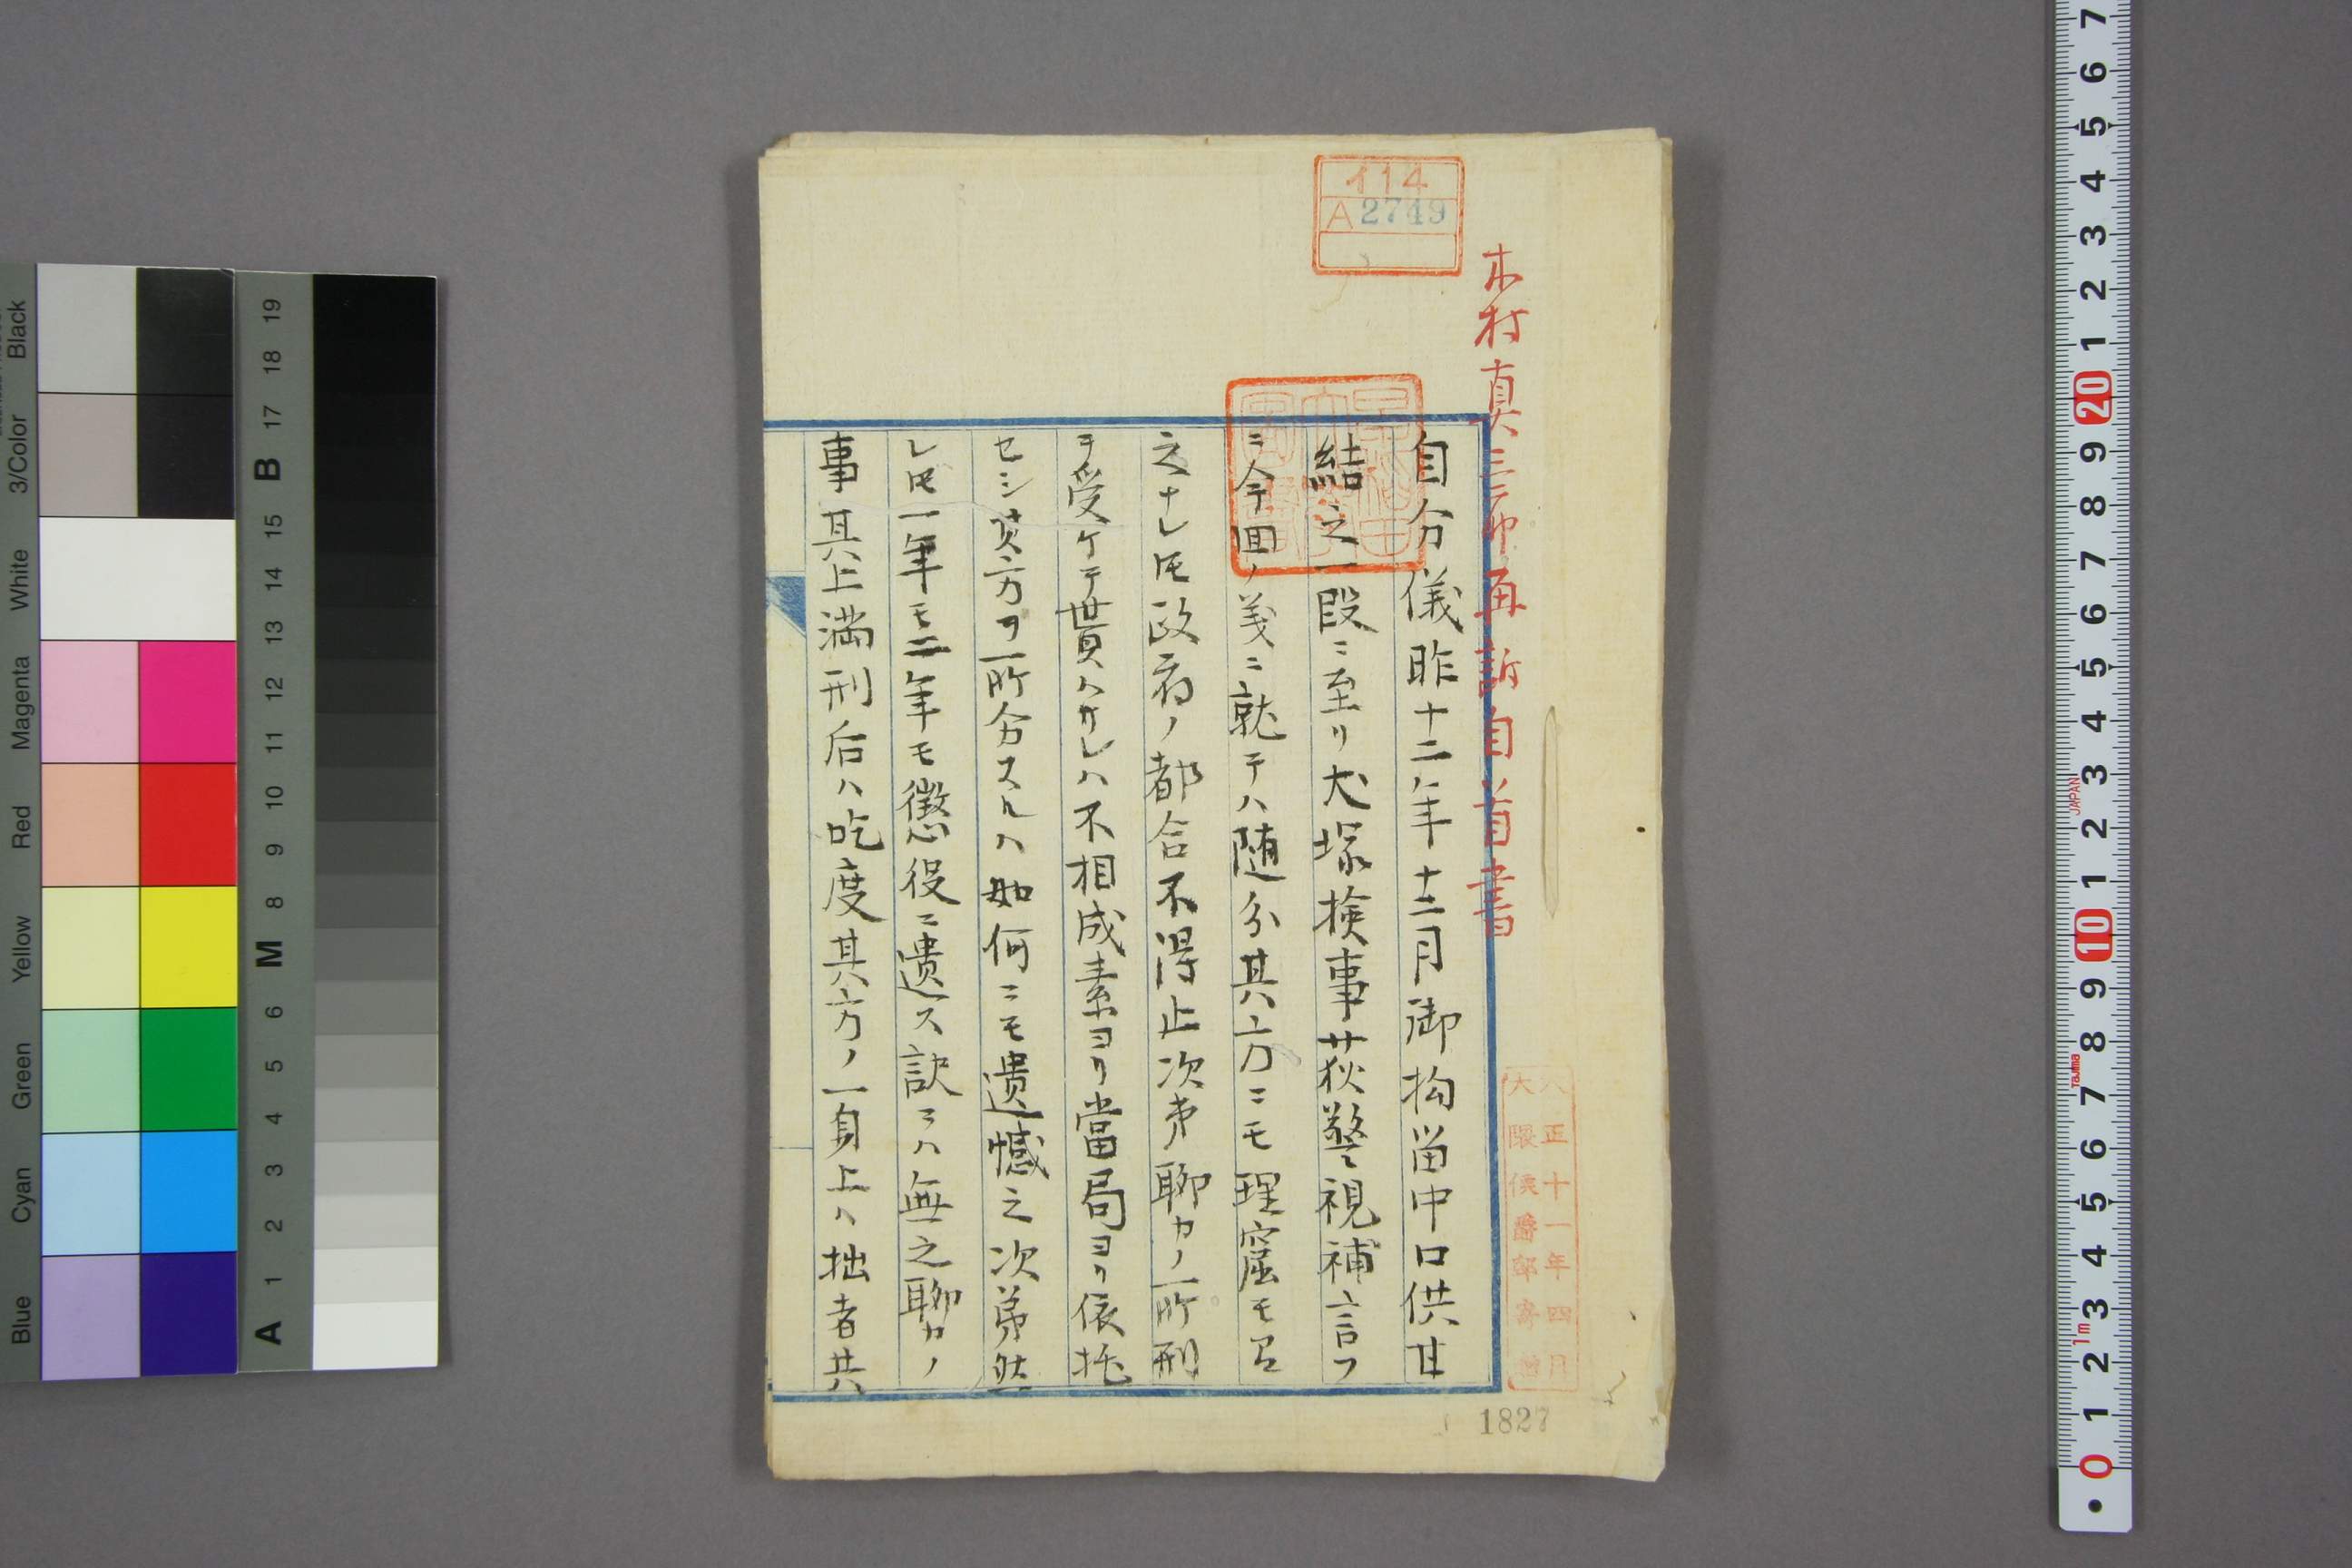 イ14
A2749
木村真三郎再訴自首書
自分儀昨十二年十二月御拘留中口供甘
結之一段ニ至リ犬塚検事荻警視補言フ
ニ今回ノ義ニ就テハ随分其方ニモ理窟モ可有
之ナレ𪜈政府ノ都合不得止次第聊カノ所刑
ヲ受ケテ貰ハサレハ不相成素ヨリ當局ヨリ依托
セシ其方ヲ所分スルハ如何ニモ遺憾之次第然
レ𪜈一年モ二年モ懲役ニ遣ス訳ニハ無之聊カノ
事其上満刑后ハ吃度其方ノ一身上ハ拙者共
大正十一年四月
大隈侯爵邸寄贈
1827
Black
3/Color
White
Magenta
Red
Yellow
Green
Cyan
Blue
19
18
17
B
15
14
13
12
11
10
9
8
M
6
5
4
3
2
1
A
7
6
5
4
3
2
1
20
9
8
7
6
5
4
3
JAPAN
2
1
10
9
8
Tajima
7
6
5
4
3
1m
2
1
0